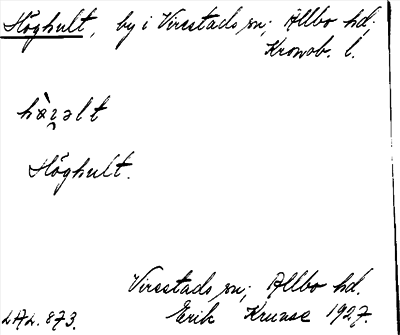 Höghult, by i Virestads sn; Allbo hd;
Kronob. l.
Höghult.
Virestads sn; Allbo hd.
Erik Kruuse 1927.
LAL. 873.